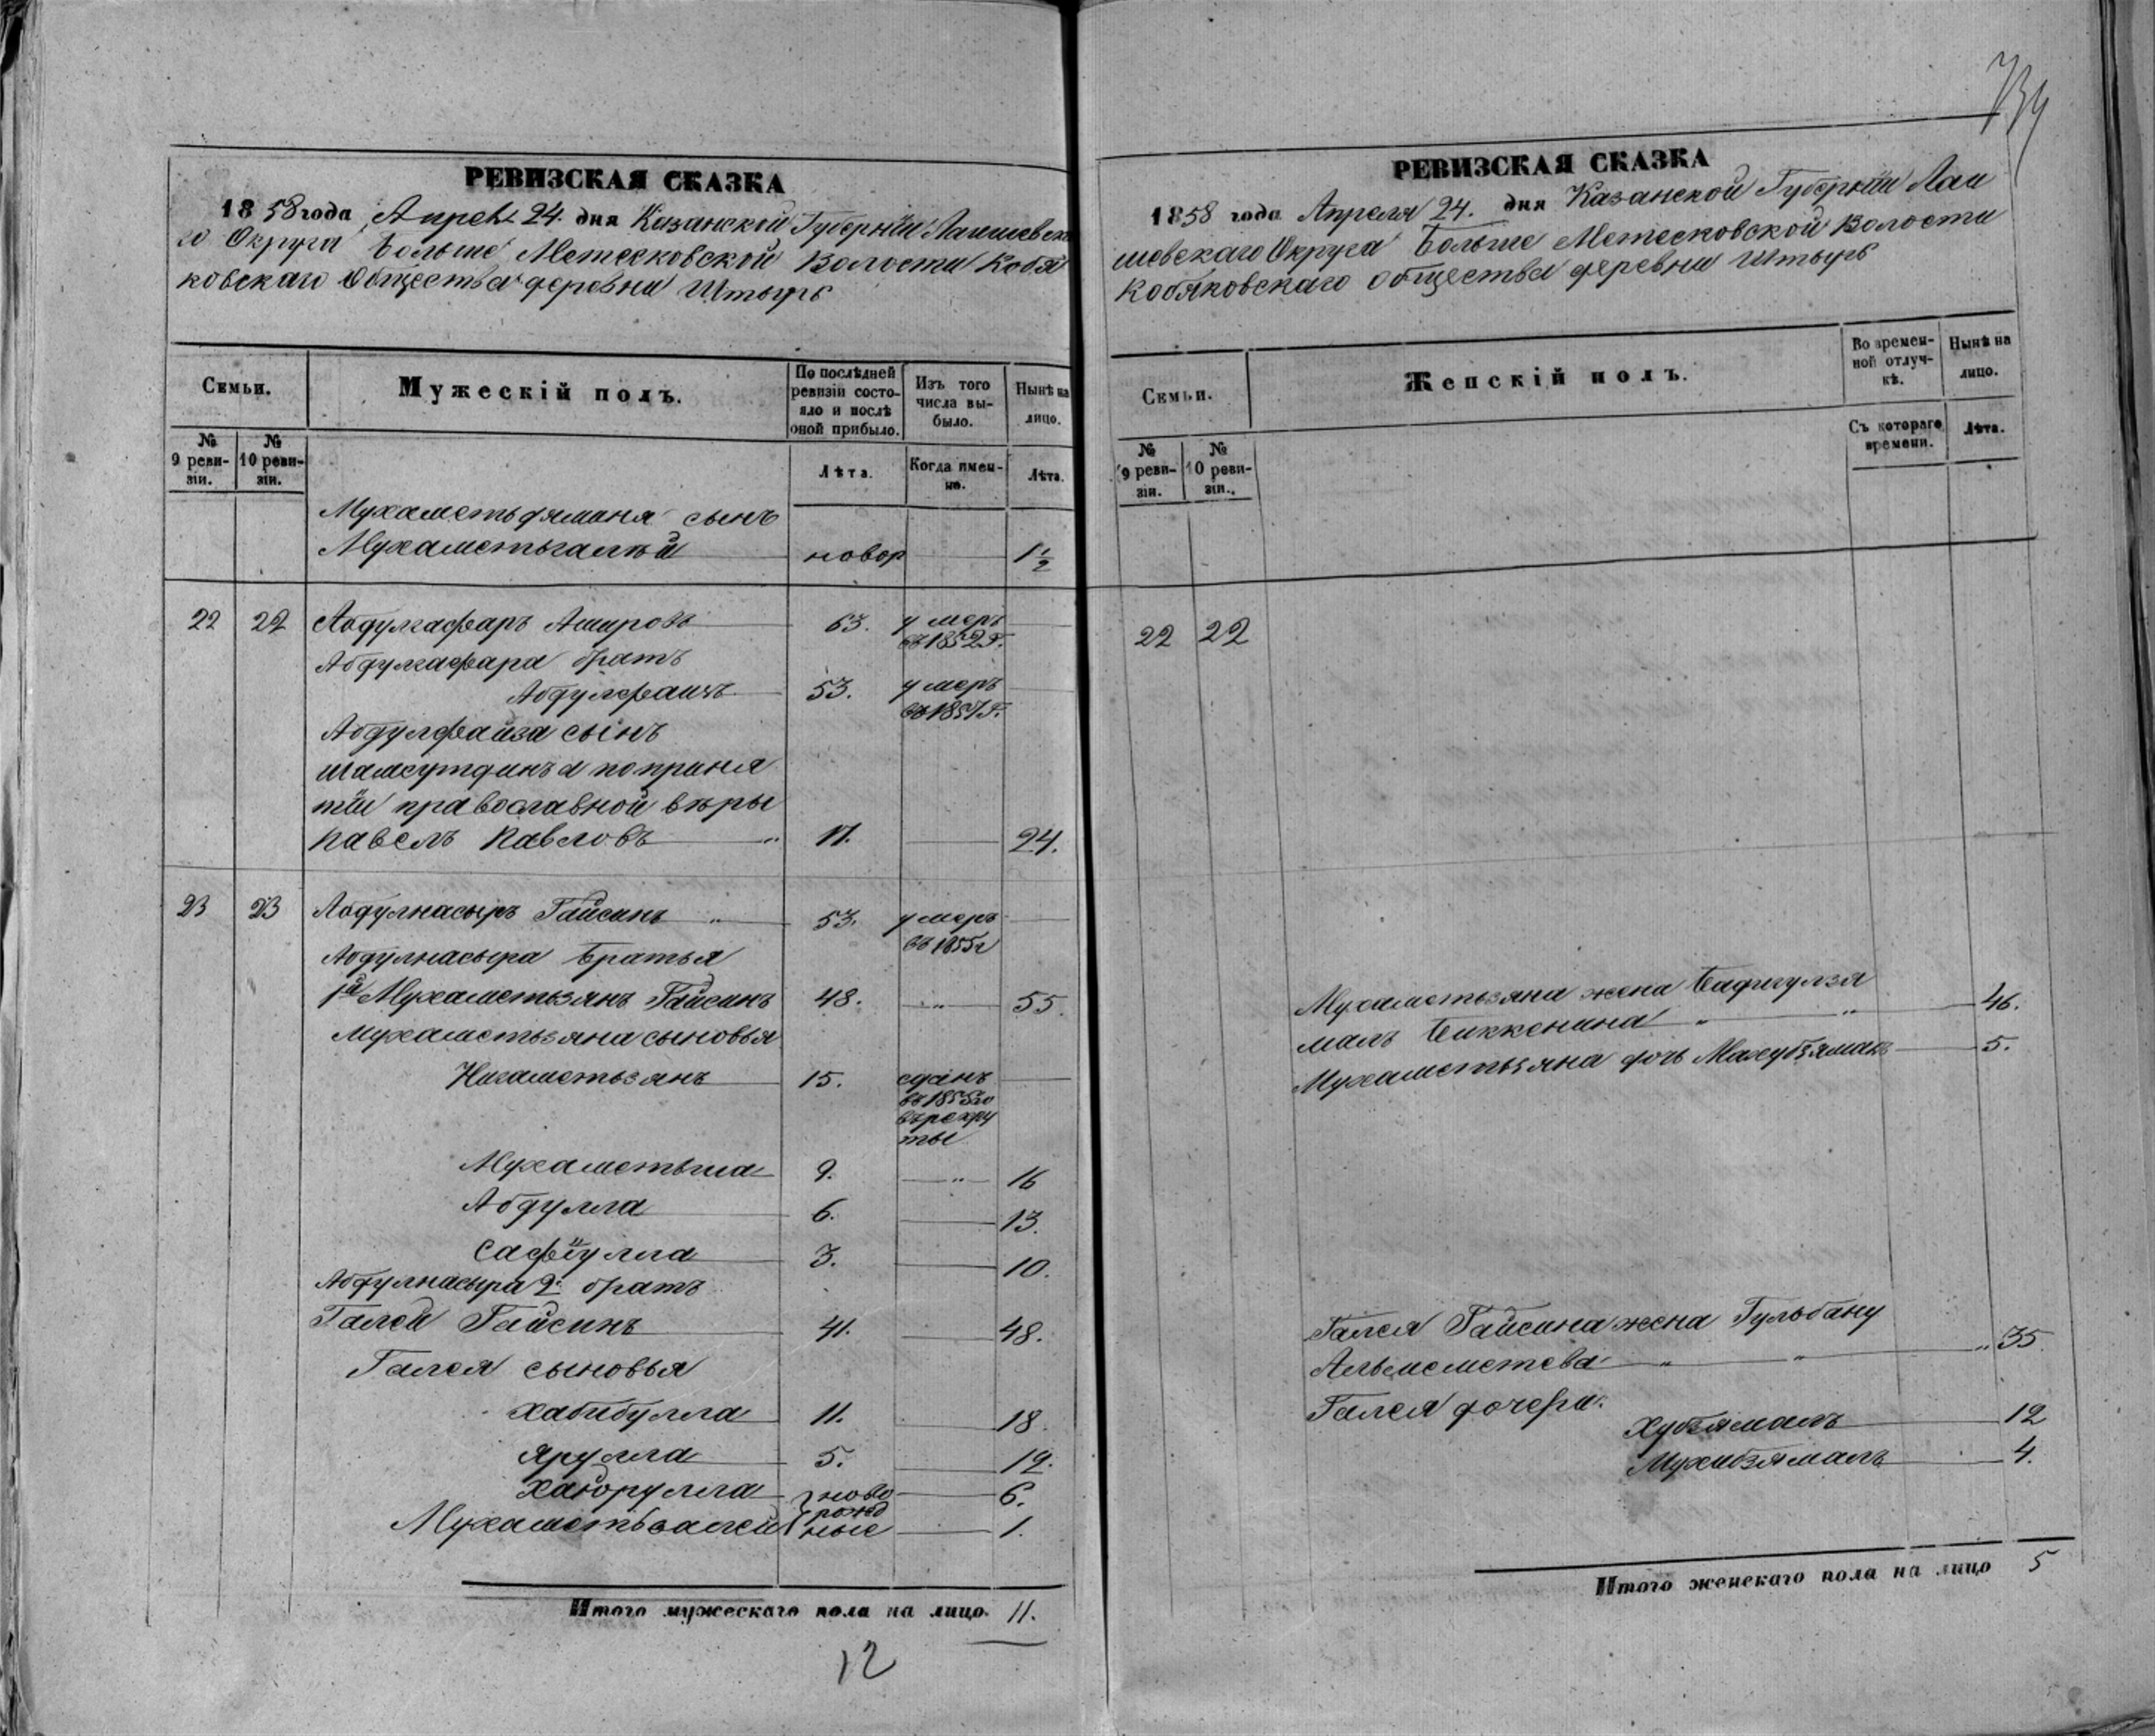 734
РЕВИЗСКАЯ СКАЗКА
1858 года Апреля 24. дня Казанской Губернiи Лаишевска
го Округа Больше Метесковской Волости Кобя
ковскаго Общества деревни Штырь
Семьи.
Мужескiй полъ.
По послѣдней ревизiи состояло и послѣ оной прибыло.
Изъ того числа выбыло.
Нынѣ на лицо.
№ 9 ревизiи.
№ 10 ревизiи.
Лѣта.
Когда именно.
Лѣта.
Мухаметьзяманя сынъ
Мухаметьгалѣй новор 1 1/2
22 22 Абдулгафаръ Ашировъ 63. умеръ въ 1852 г.
Абдулгафара братъ
Абдулфаизъ 53. умеръ въ 1857 г.
Абдулфаиза сынъ
Шамсутдинъ а по приня
тiи православной вѣры
Павелъ Павловъ 17. 24.
23 23 Абдулнасыръ Гайсинъ 53. умеръ въ 1855 г
Абдулнасыра братья
1й Мухаметьзянъ Гайсинъ 48. 55.
Мухаметьзяна сыновья
Нигаметьзянъ 15. сданъ въ 1855 го въ рекру ты
Мухаметьша 9. 16
Абдулла 6. 13.
Сафiулла 3. 10.
Абдулнасыра 2й братъ
Галей Гайсинъ 41. 48.
Галея сыновья
Хабибулла 11. 18.
Ярулла 5. 12.
Хайрулла } ново 6.
Мухаметьвалей } рожд ные 1.
Итого мужескаго пола на лицо. 11.
12
РЕВИЗСКАЯ СКАЗКА
1858 года Апреля 24. дня Казанской Губернiи Лаи
шевскаго Округа Больше Метесковской Волости
Кобяковскаго общества деревни Штырь
Семьи.
Женскiй полъ.
Во временной отлучкѣ.
Нынѣ на лицо.
№ 9 ревизiи.
№ 10 ревизiи.
Съ котораго времени.
Лѣта.
22 22
Мухаметьзяна жена Бадигулзя
малъ Биккенина 46.
Мухаметьзяна дочь Махубзямалъ 5.
Галея Гайсина жена Гульбану
Альмеметева 35
Галея дочери.
Хубзямалъ 12
Мухибзямалъ 4.
Итого женскаго пола на лицо 5